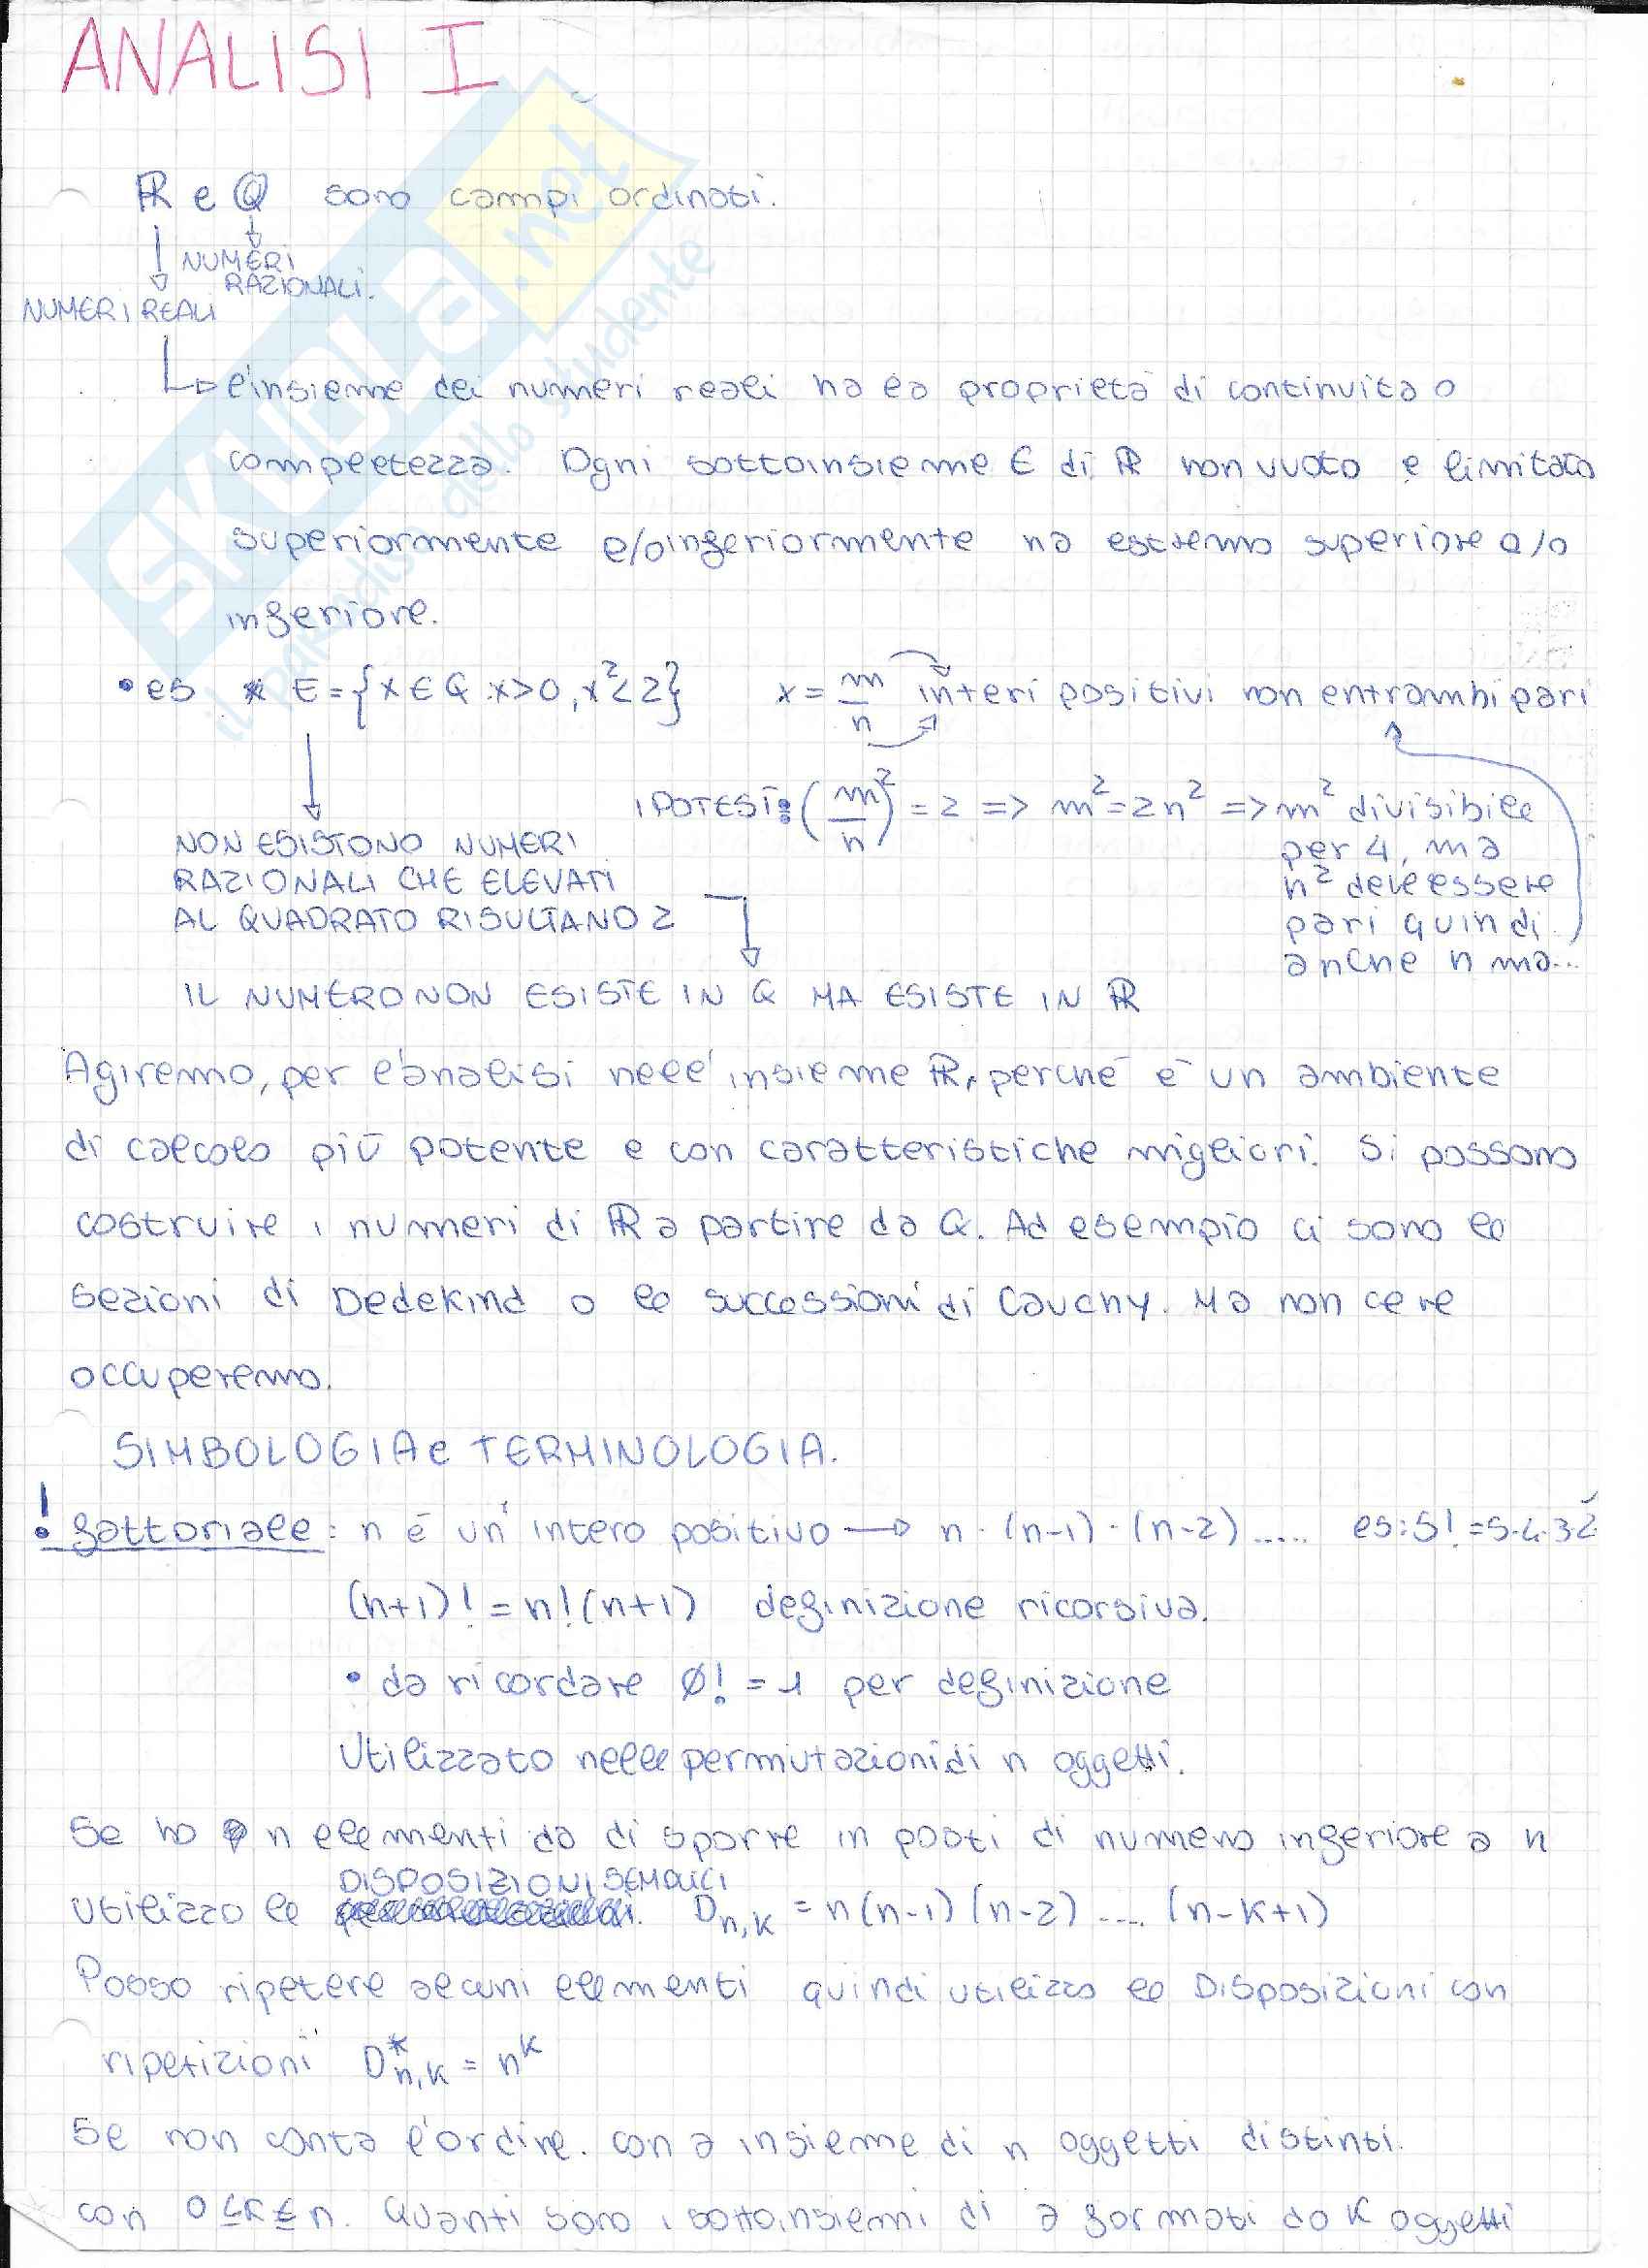 ANALISI I
ℝ e ℚ sono campi ordinati.
NUMERI
RAZIONALI.
NUMERI REALI
l'insieme dei numeri reali ha la proprietà di continuità o
completezza. Ogni sottoinsieme E di ℝ non vuoto e limitato
superiormente e/o inferiormente ha estremo superiore e/o
inferiore.
• es E = {x ∈ Q : x>0, x²<2} x = m/n interi positivi non entrambi pari
IPOTESI: (m/n)² = 2 => m² = 2n² => m² divisibile
per 4, ma
n² deve essere
pari quindi
anche n ma...
NON ESISTONO NUMERI
RAZIONALI CHE ELEVATI
AL QUADRATO RISULTANO 2
IL NUMERO NON ESISTE IN Q MA ESISTE IN ℝ
Agiremo, per l'analisi nell'insieme ℝ, perché è un ambiente
di calcolo più potente e con caratteristiche migliori. Si possono
costruire i numeri di ℝ a partire da Q. Ad esempio ci sono le
sezioni di Dedekind o le successioni di Cauchy. Ma non ce ne
occuperemo.
SIMBOLOGIA e TERMINOLOGIA.
! fattoriale: n è un' intero positivo → n · (n-1) · (n-2) ..... es: 5! = 5·4·3·2
(n+1)! = n!(n+1) definizione ricorsiva.
• da ricordare Ø! = 1 per definizione
Utilizzato nelle permutazioni di n oggetti.
Se ho n elementi da disporre in posti di numero inferiore a n
DISPOSIZIONI SEMPLICI
utilizzo le D n,k = n(n-1)(n-2) .... (n-k+1)
Posso ripetere alcuni elementi quindi utilizzo le Disposizioni con
ripetizioni D*n,k = n^k
Se non conta l'ordine. con a insieme di n oggetti distinti.
con 0 ≤ k ≤ n. Quanti sono i sottoinsiemi di a formati da k oggetti
SKUOLA.net
il paradiso dello studente